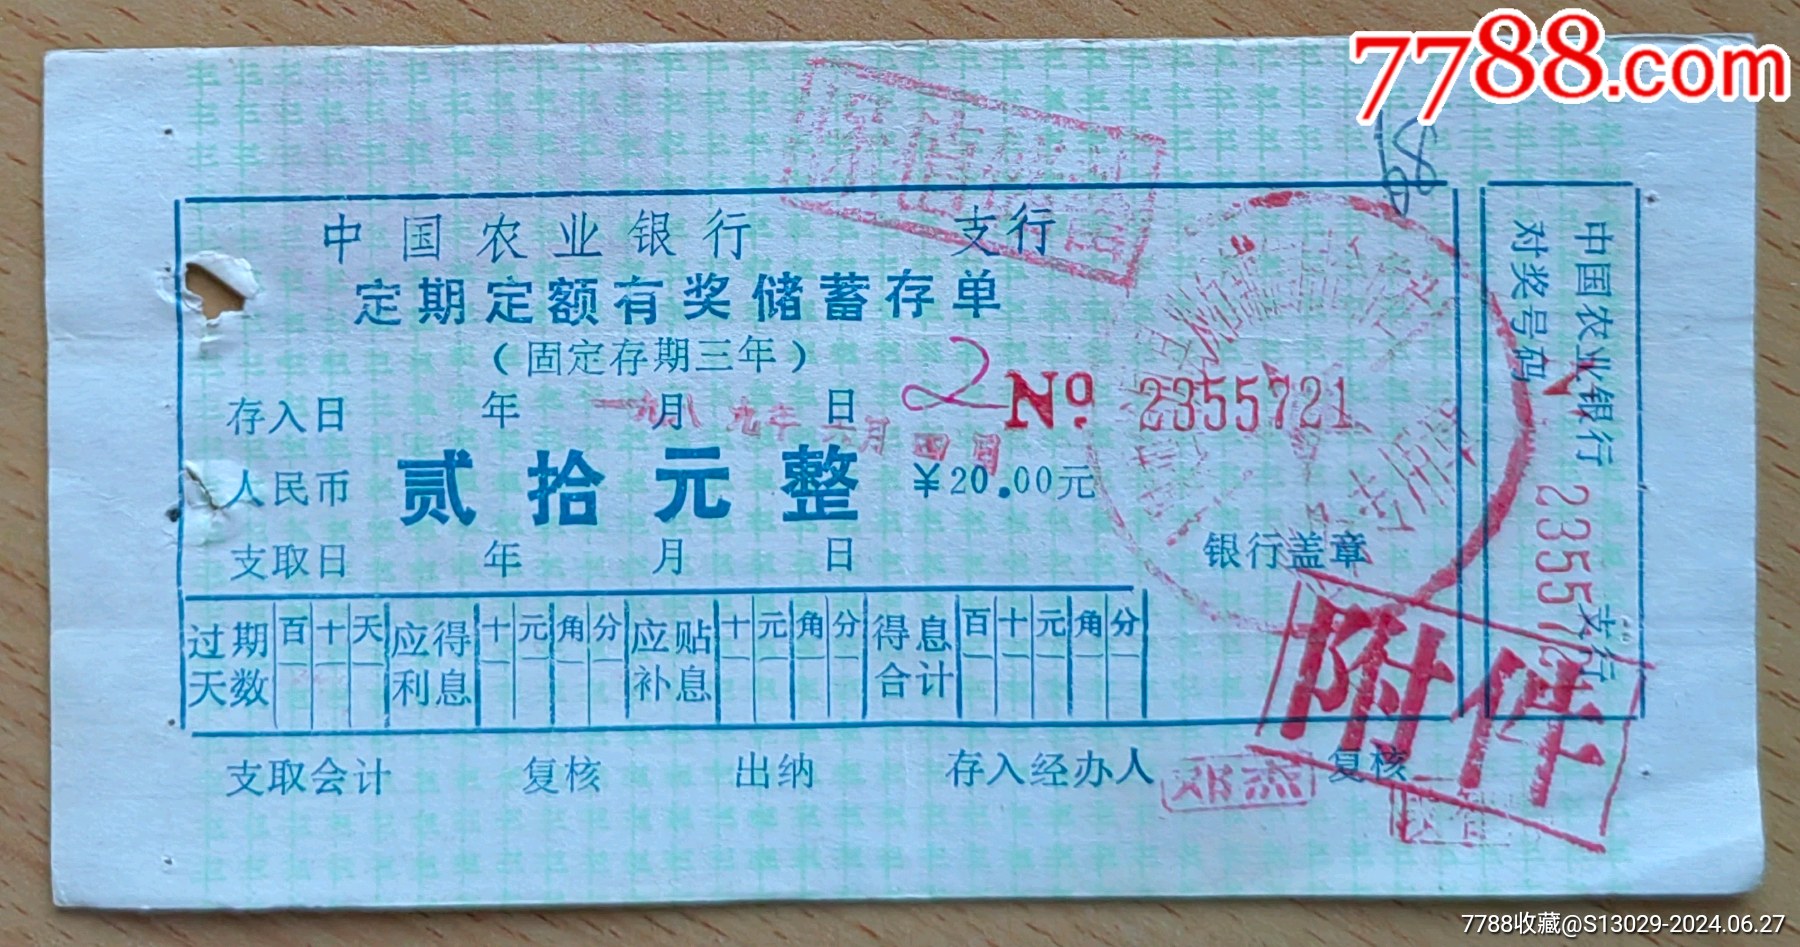 7788.com
中国农业银行 支行
定期定额有奖储蓄存单
(固定存期三年)
存入日 年 月 日
一九八九年 月四日
2 № 2355721
人民币 贰拾元整 ¥20.00元
支取日 年 月 日
银行盖章
过期天数 百 十 天 应得利息 十 元 角 分 应贴补息 十 元 角 分 得息合计 百 十 元 角 分
支取会计 复核 出纳 存入经办人 复核
邓杰
附件
中国农业银行 支行
对奖号码 235572
7788收藏@S13029-2024.06.27